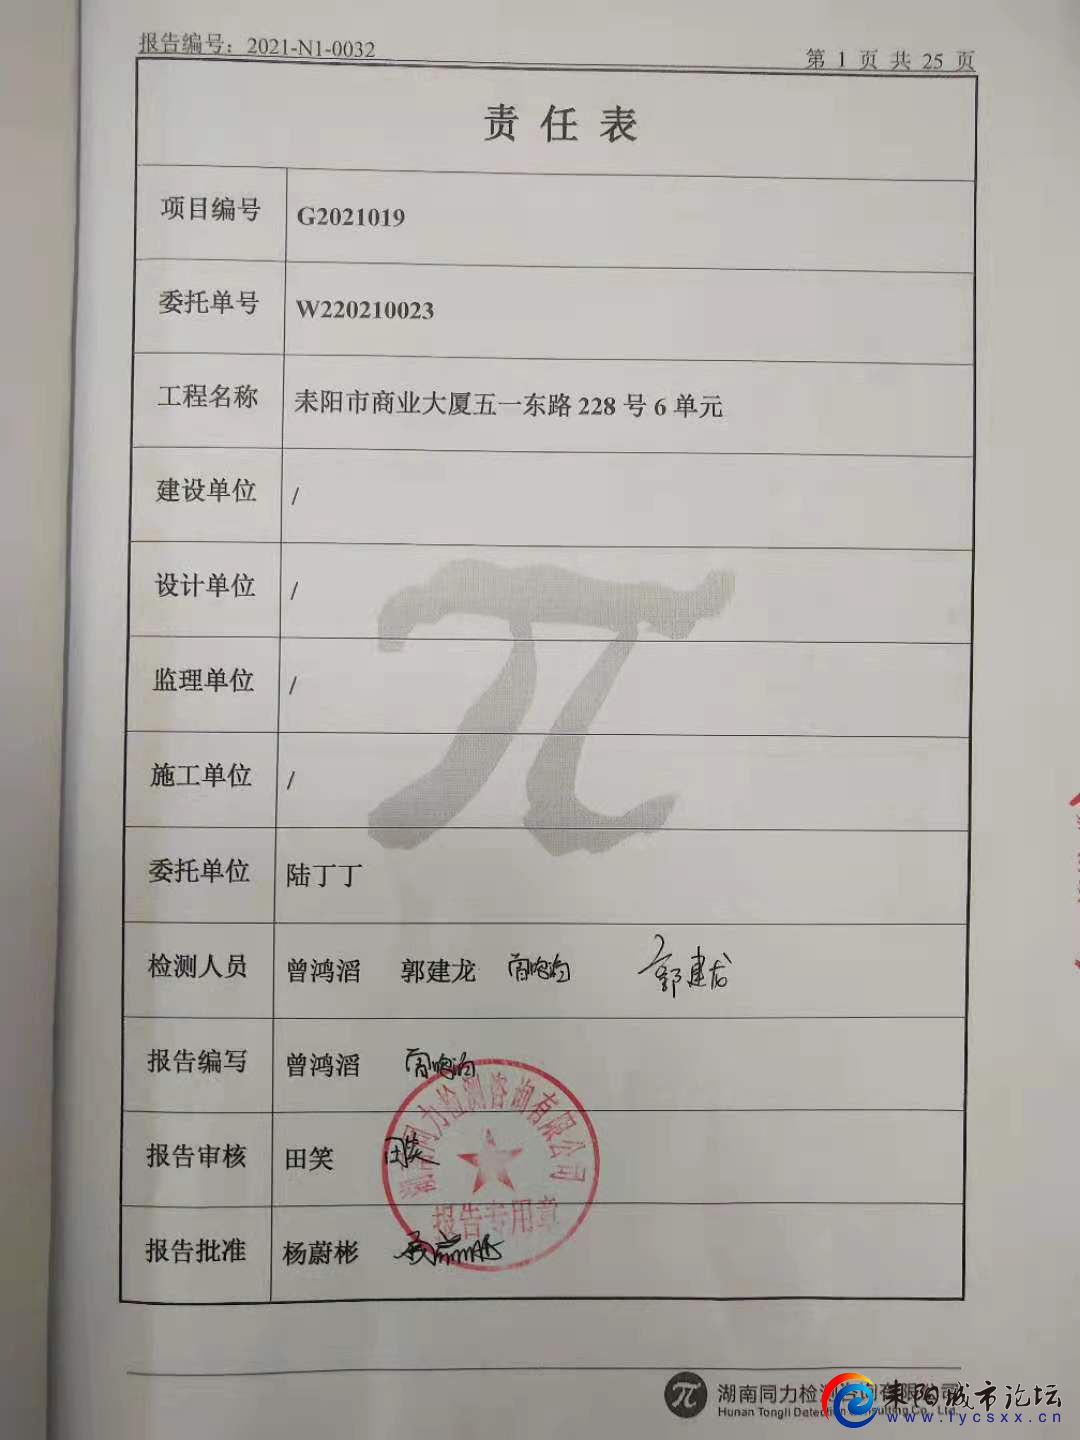 报告编号：2021-N1-0032
第 1 页 共 25 页
责 任 表
项目编号 G2021019
委托单号 W220210023
工程名称 耒阳市商业大厦五一东路 228 号 6 单元
建设单位 /
设计单位 /
监理单位 /
施工单位 /
委托单位 陆丁丁
检测人员 曾鸿滔 郭建龙 郭建龙
报告编写 曾鸿滔
报告审核 田笑 田笑
报告批准 杨蔚彬
湖南同力检测咨询有限公司
报告专用章
湖南同力检测咨询有限公司
Hunan Tongli Detection Consulting Co., Ltd.
耒阳城市论坛
www.lycsxx.cn